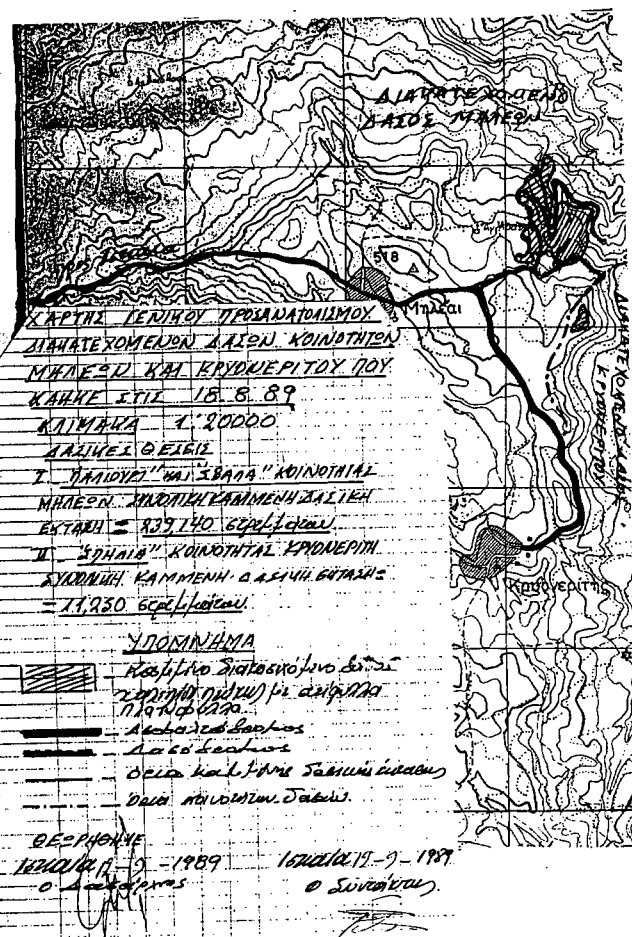 ΔΙΑΚΑΤΕΧΟΜΕΝΟ
ΔΑΣΟΣ ΜΗΛΕΩΝ
518
Μηλέαι
ΔΙΑΚΑΤΕΧΟΜΕΝΟ ΔΑΣΟΣ
ΚΡΥΟΝΕΡΙΤΟΥ
Κρυονερίτης
ΧΑΡΤΗΣ ΓΕΝΙΚΟΥ ΠΡΟΣΑΝΑΤΟΛΙΣΜΟΥ
ΔΙΑΚΑΤΕΧΟΜΕΝΩΝ ΔΑΣΩΝ ΚΟΙΝΟΤΗΤΩΝ
ΜΗΛΕΩΝ ΚΑΙ ΚΡΥΟΝΕΡΙΤΟΥ ΠΟΥ
ΚΑΗΚΕ ΣΤΙΣ 18-8-89
ΚΛΙΜΑΚΑ 1:20000
ΔΑΣΙΚΕΣ ΘΕΣΕΙΣ
Ι "ΠΑΛΙΟΥΡΙ" ΚΑΙ "ΣΒΑΛΑ" ΚΟΙΝΟΤΗΤΑΣ
ΜΗΛΕΩΝ ΣΥΝΟΛΙΚΗ ΚΑΜΜΕΝΗ ΔΑΣΙΚΗ
ΕΚΤΑΣΗ = 839,140 στρεμμάτων
ΙΙ "ΣΠΗΛΙΑ" ΚΟΙΝΟΤΗΤΑΣ ΚΡΥΟΝΕΡΙΤΗ
ΣΥΝΟΛΙΚΗ ΚΑΜΜΕΝΗ ΔΑΣΙΚΗ ΕΚΤΑΣΗ =
= 11,250 στρεμμάτων
ΥΠΟΜΝΗΜΑ
Καμμένο διακατεχόμενο δάσος
με αείφυλλα
πλατύφυλλα
Δασόδρομος
όρια καμμένης δασικής έκτασης
όρια κοινοτικών δασών
ΘΕΩΡΗΘΗΚΕ
Ιστιαία -9-1989
Ο Δασάρχης
Ιστιαία 19-9-1989
Ο Συντάκτης